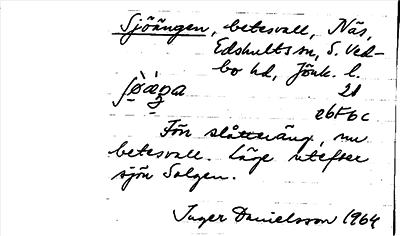 Sjöängen, betesvall, Näs,
Edshults sn, S. Ved-
bo hd, Jönk. l.
21
ebF6c
Förr slåtteräng, nu
betesvall. Läge utefter
sjön Solgen.
Inger Danielsson 1964